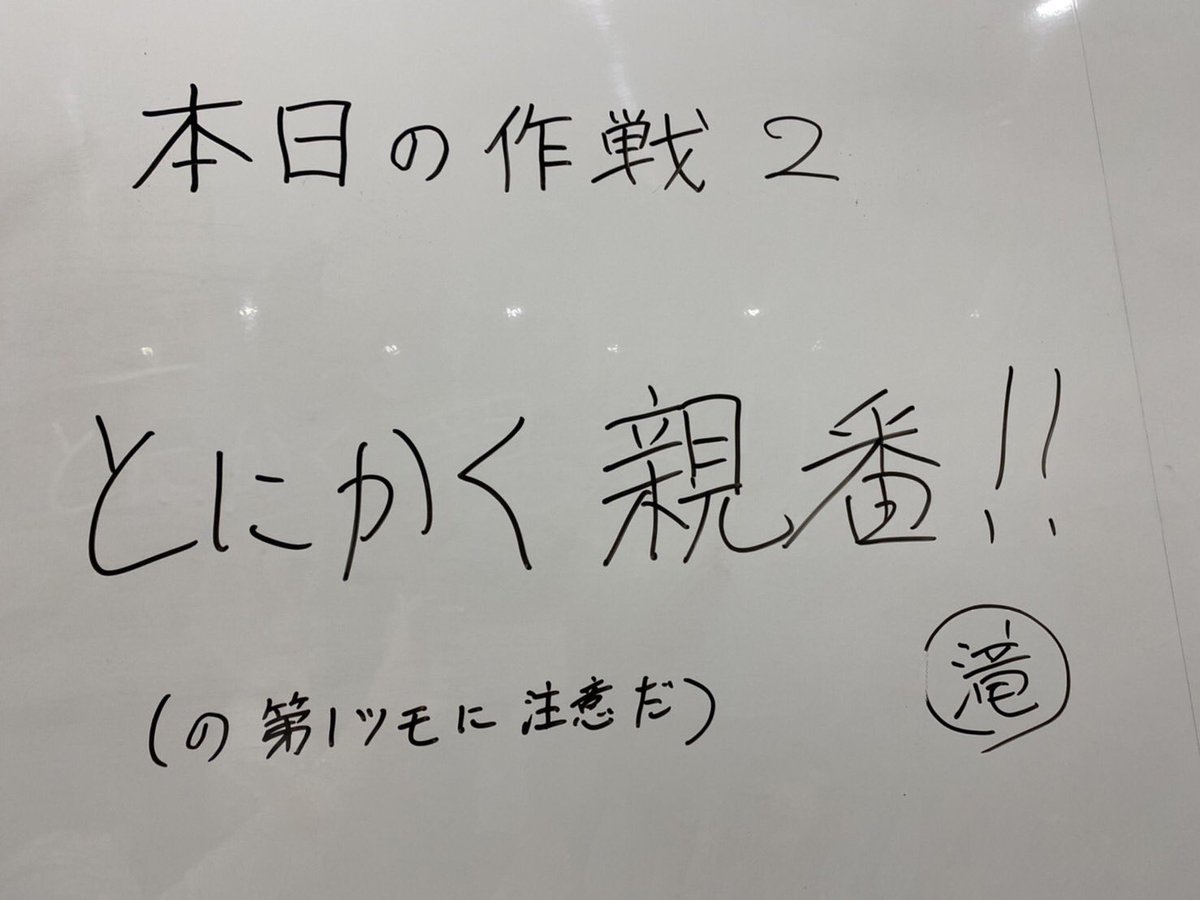 本日の作戦2
とにかく親番!!
滝
(の第1ツモに注意だ)